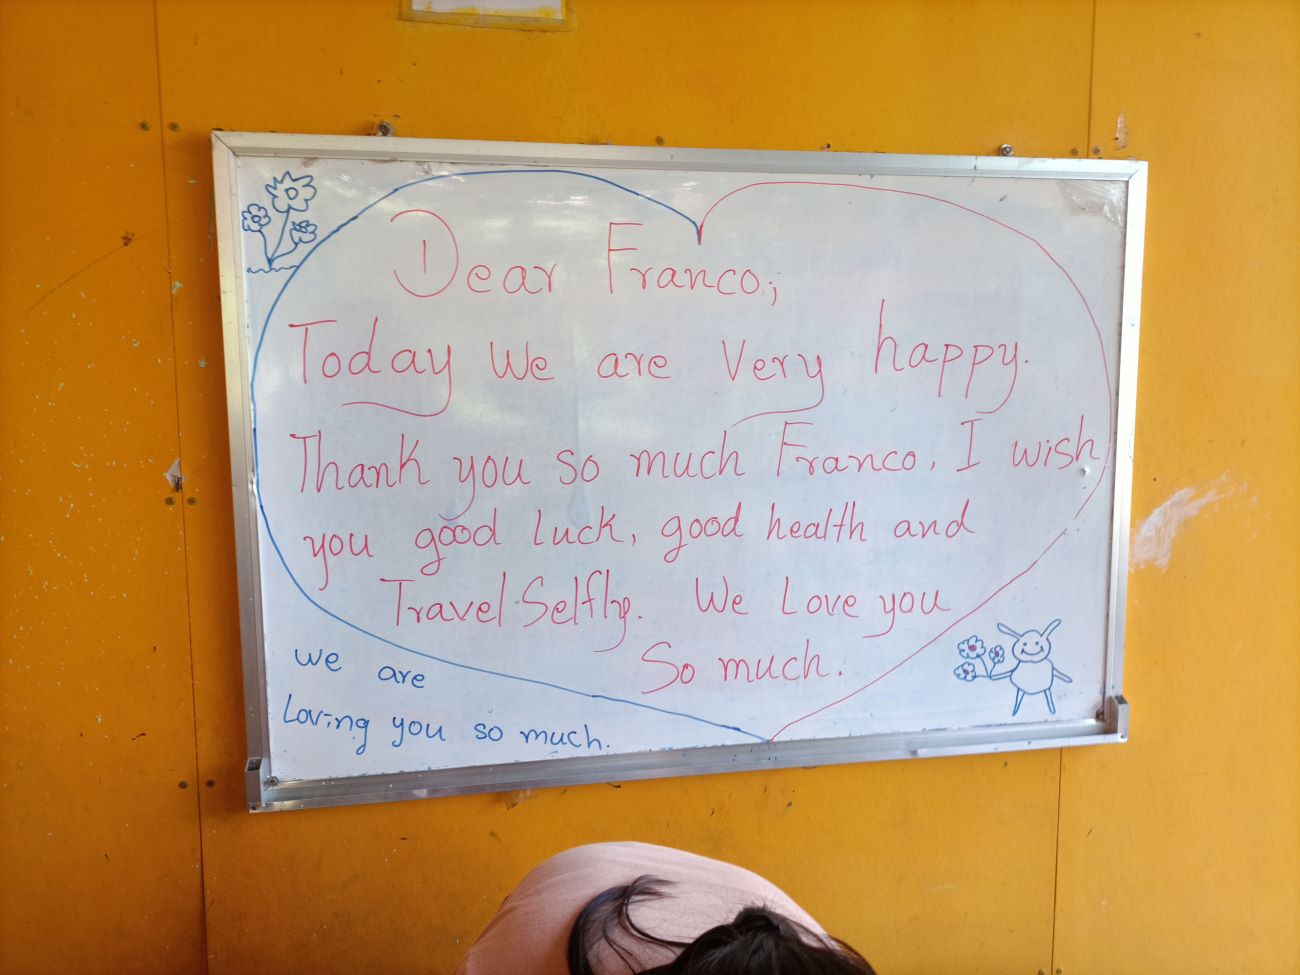 Dear Franco;
Today We are Very happy.
Thank you so much Franco, I wish
you good luck, good health and
Travel Selfly. We Love you
So much.
we are
Loving you so much.